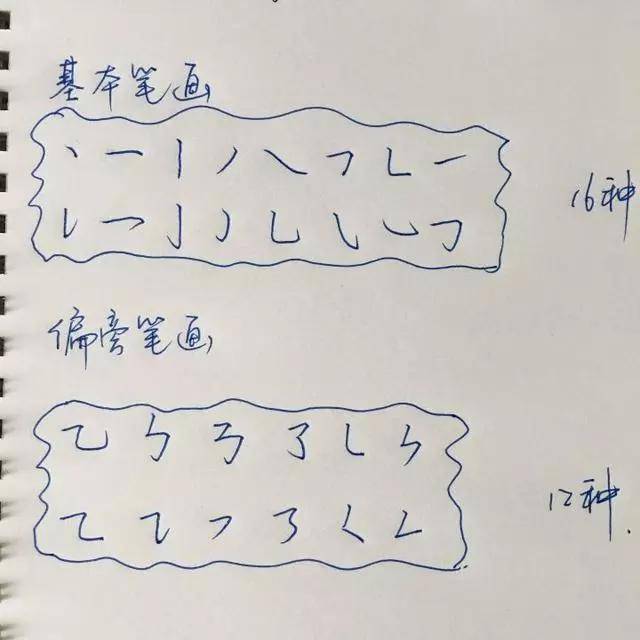 基本笔画
丶 一 丨 丿 ㇏ ㇇ ㇗ ㇀
㇙ ㇖ 亅 ㇁ ㇄ ㇂ ㇃ ㇆
16种
偏旁笔画
乙 ㇉ ㇋ ㇌ ㇄ ㇉
㇈ ㇍ ㇇ ㇌ ㇛ ㇗
12种